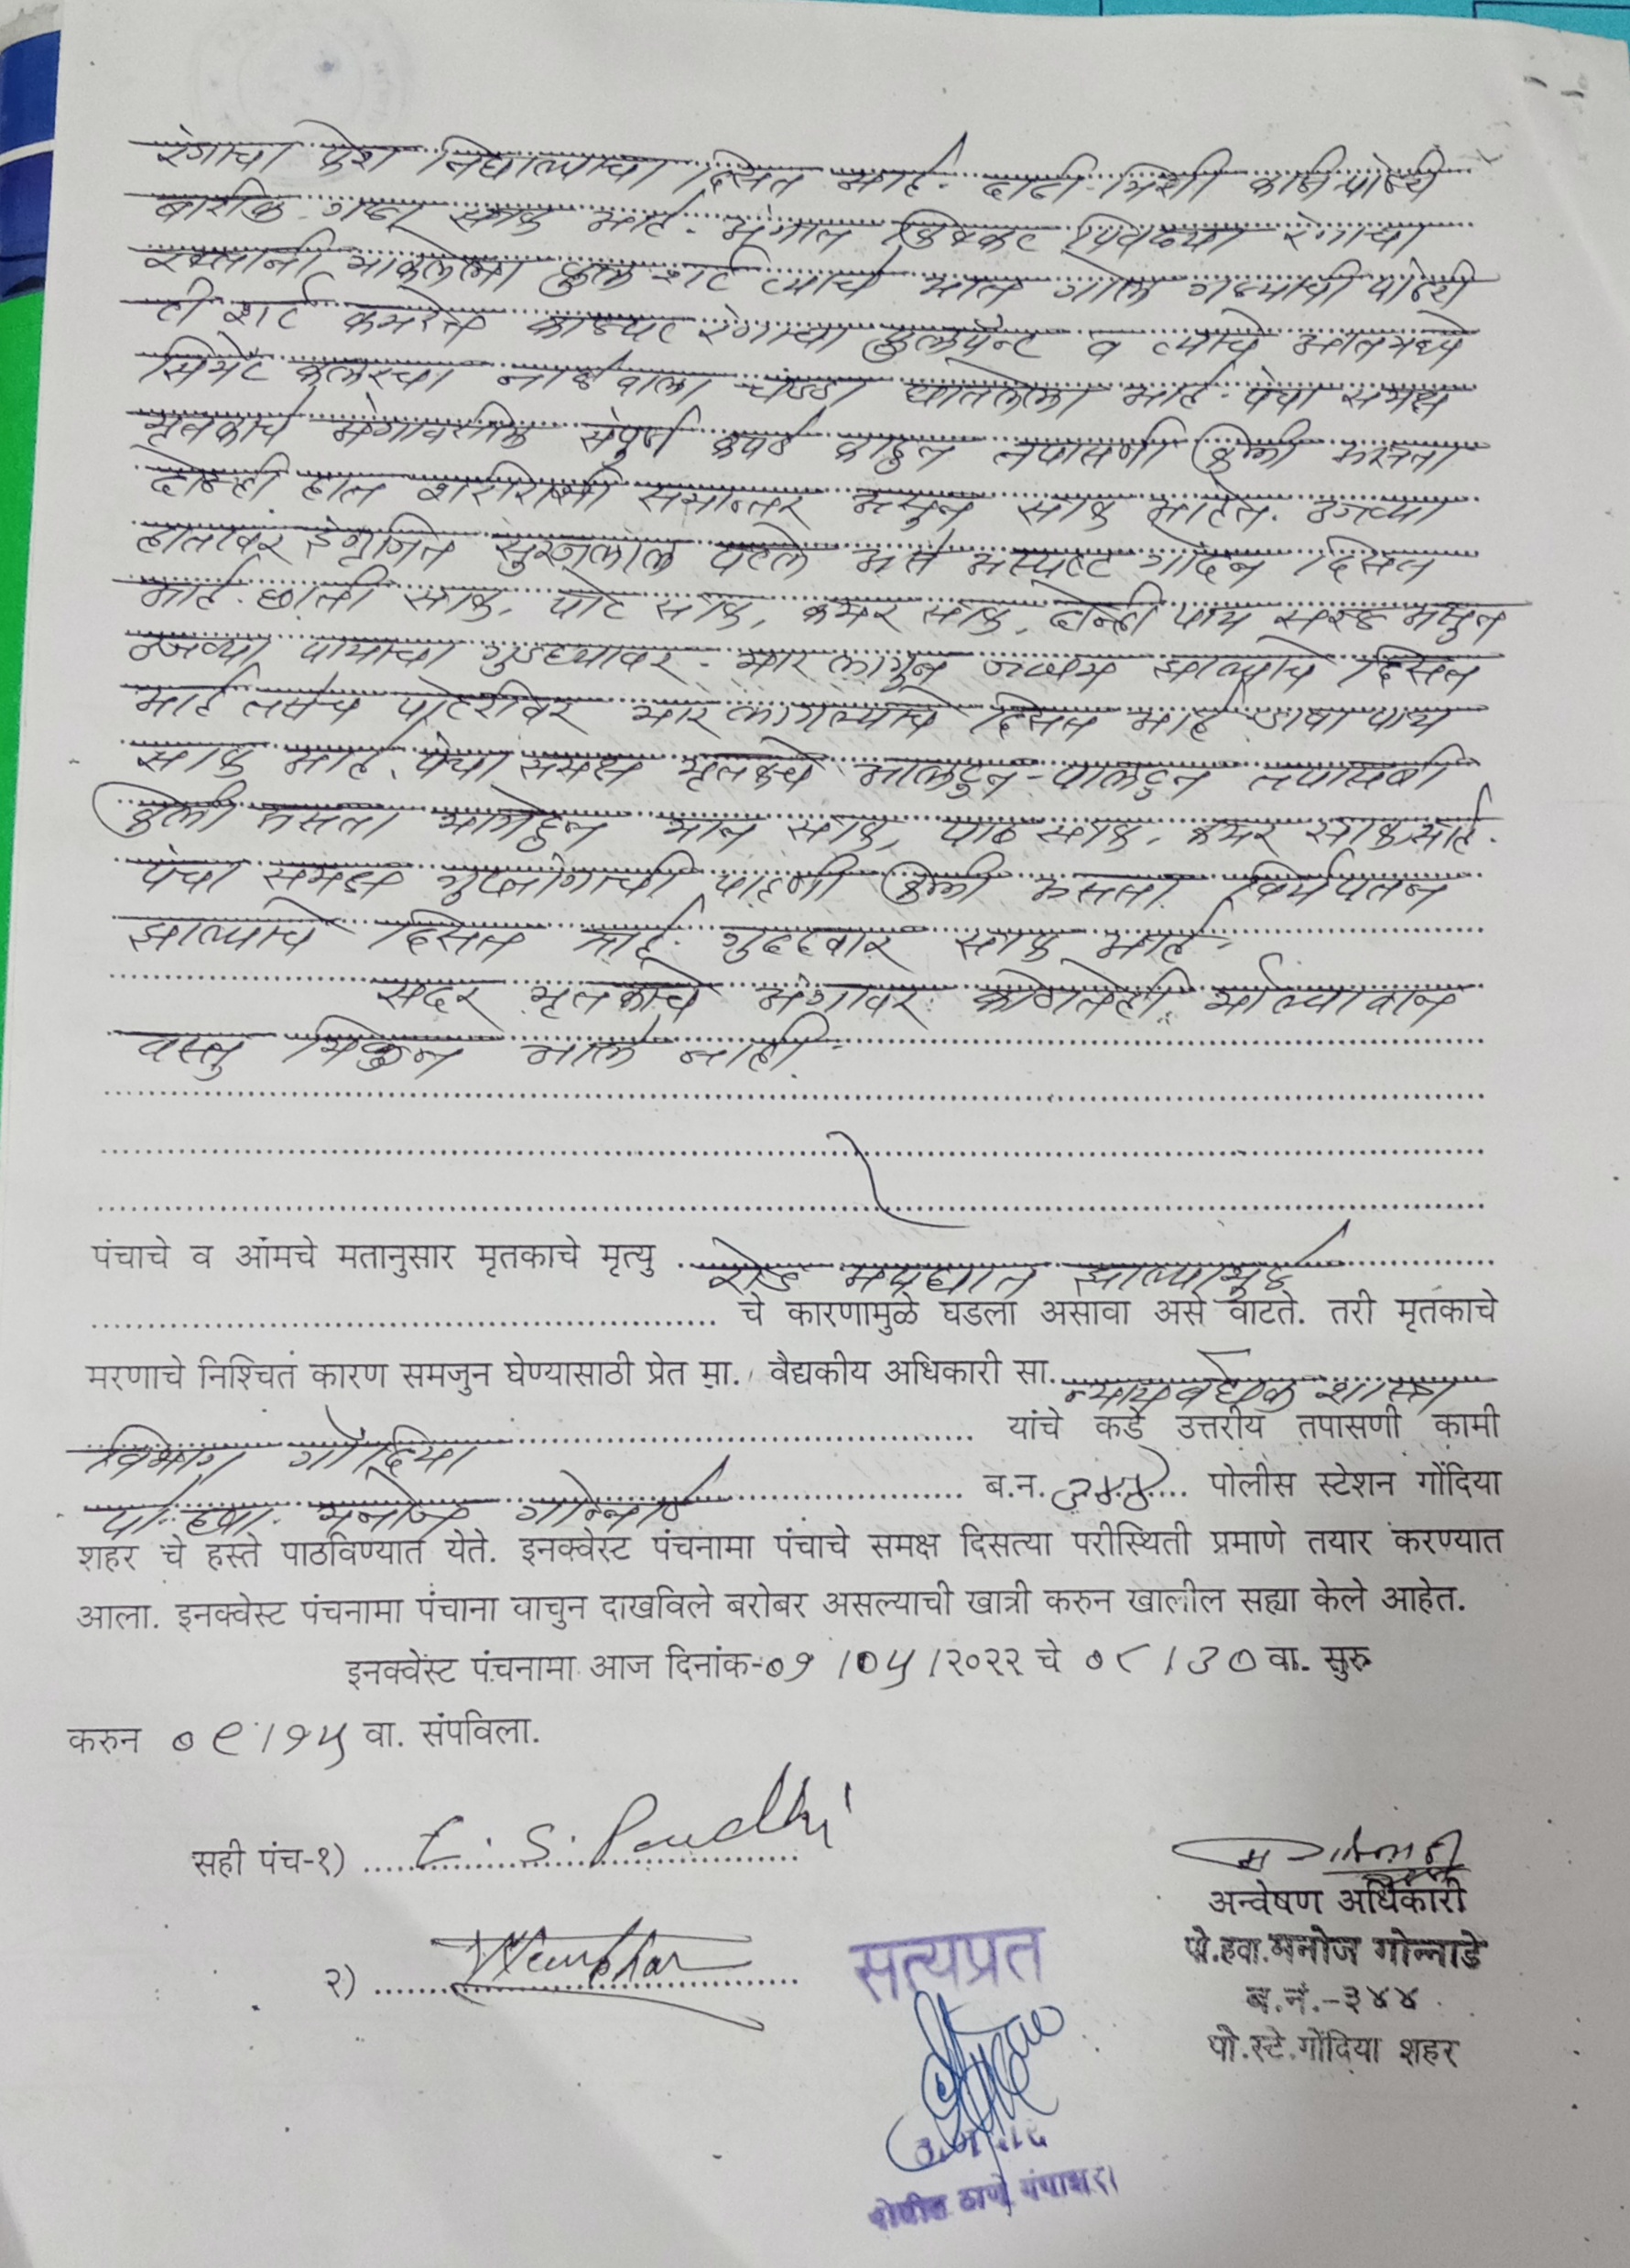 रंगाचा फेश निघाल्याचा दिसत आहे. दाढी मिशी काळी पांढरी
बारीक गळा साफ आहे. अंगात बिस्कट पिवळ्या रंगाचा
रक्तानी माकलेला फुल शर्ट त्याचे आत गोल गळ्याची पांढरी
टी शर्ट कमरेत रंगाचा फुलपॅन्ट व त्याचे आतमध्ये
सिमेंट कलरचा वाला चड्डा घातलेला आहे. पंचा समक्ष
मृतकाचे अंगावरील संपूर्ण कपडे काढुन तपासणी केली असता
दोन्ही हात शरीराशी समान्तर असुन साफ आहेत. उजव्या
हातावर इंग्रजित सुरजलाल पटले असे अस्पष्ट गोंदन दिसत
आहे. छाती साफ, पोट साफ, कमर साफ, दोन्ही पाय सरळ असुन
उजव्या पायाचा गुडघ्यावर मार लागून जखम झाल्याचे दिसत
आहे तसेच पोटरीवर मार लागल्याचे दिसत आहे डावा पाय
साफ आहे. पंचा समक्ष मृतकाचे आलटुन-पालटुन तपासणी
केली असता मागेहुन मान साफ, पाठ साफ, कमर साफ आहे.
पंचा समक्ष गुप्तांगाची पाहणी केली असता विर्यपतन
झाल्याचे दिसत आहे. गुदद्वार साफ आहे.
सदर मृतकाचे अंगावर कोणतेही मौल्यावान
वस्तु मिळुन आले नाही.
पंचाचे व आंमचे मतानुसार मृतकाचे मृत्यु रोड अपघात झाल्यामुळे
चे कारणामुळे घडला असावा असे वाटते. तरी मृतकाचे
मरणाचे निश्चित कारण समजुन घेण्यासाठी प्रेत मा. वैद्यकीय अधिकारी सा. न्यायवैद्यक शास्त्र
विभाग गोंदिया यांचे कडे उत्तरीय तपासणी कामी
पो.हवा. मनोज गोन्नाडे ब.न. ३४४ पोलीस स्टेशन गोंदिया
शहर चे हस्ते पाठविण्यात येते. इनक्वेस्ट पंचनामा पंचाचे समक्ष दिसत्या परीस्थिती प्रमाणे तयार करण्यात
आला. इनक्वेस्ट पंचनामा पंचाना वाचुन दाखविले बरोबर असल्याची खात्री करुन खालील सह्या केले आहेत.
इनक्वेस्ट पंचनामा आज दिनांक-०१/०५/२०२२ चे ०८/३० वा. सुरु
करुन ०९/१५ वा. संपविला.
सही पंच-१)
२)
सत्यप्रत
अन्वेषण अधिकारी
पो.हवा.मनोज गोन्नाडे
ब.नं.-३४४
पो.स्टे.गोंदिया शहर
पोलीस ठाणे